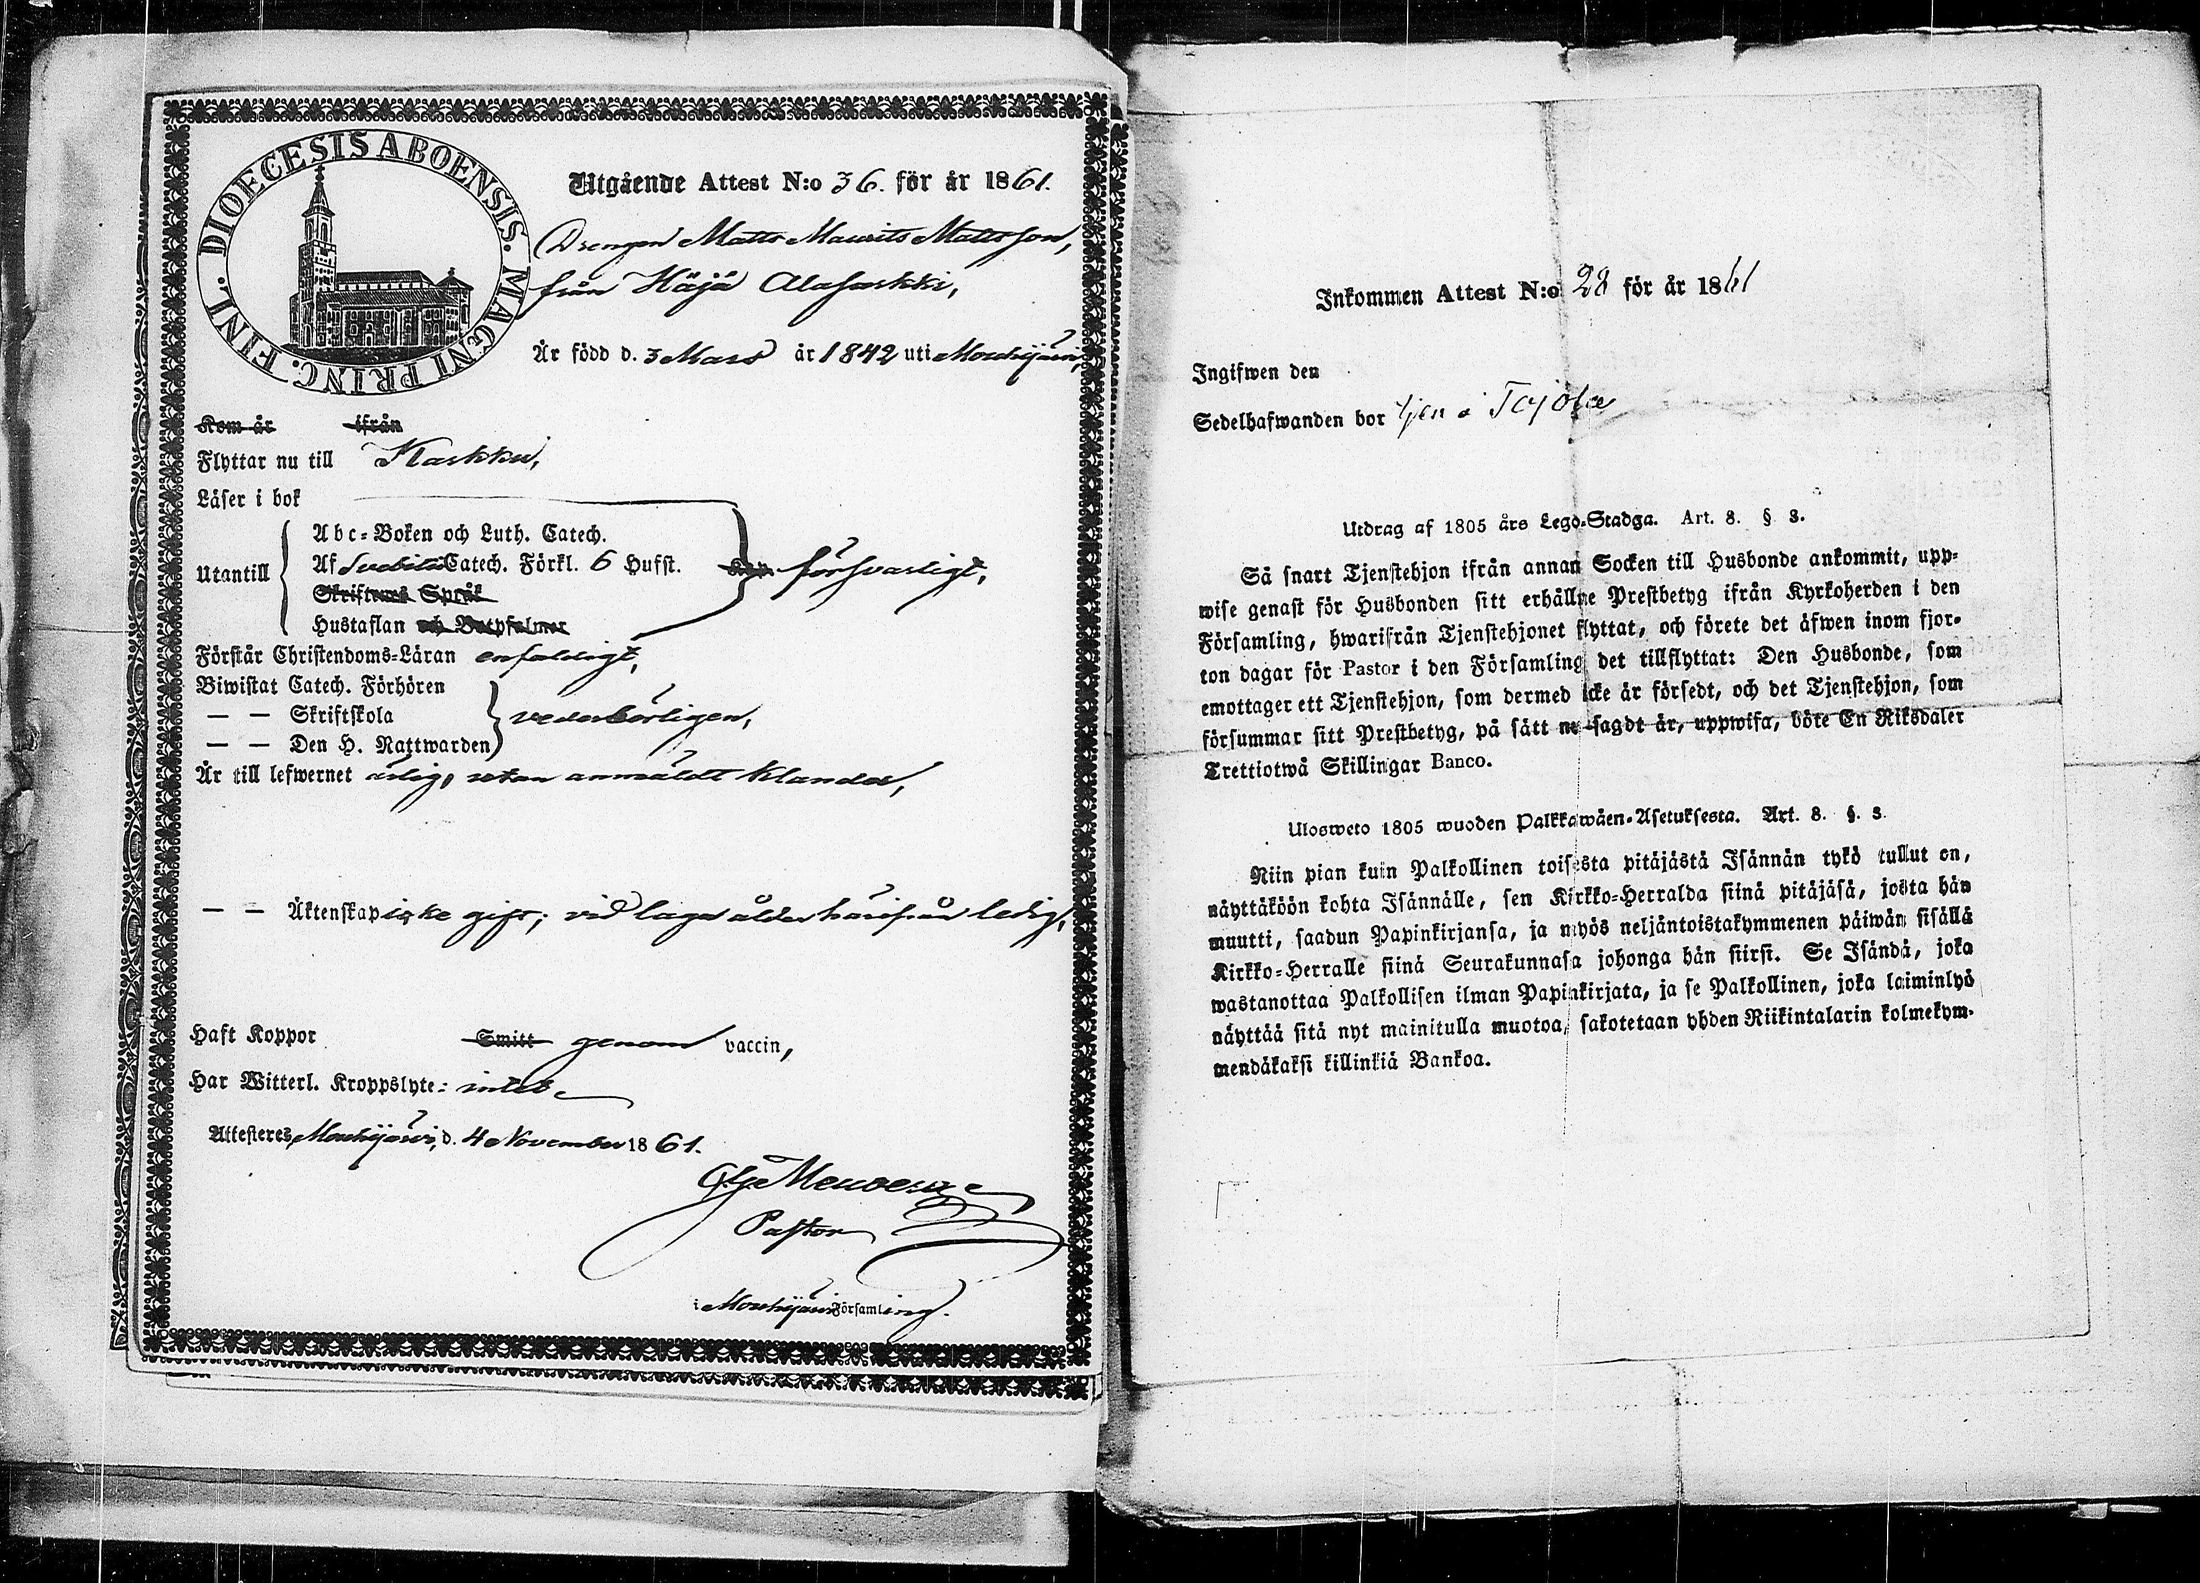 DIOECESIS ABOENSIS. MAGNI PRINC. FINL.
Utgående Attest N:o 36. för år 1861.
Drengen Matts Maurits Mattsson,
från Häjä Alasarkki,
Är född d. 3 Mars år 1842 uti Mouhijärvi,
Kom år ifrån
Flyttar nu till Karkku,
Läser i bok
Utantill
Abc-Boken och Luth. Catech.
Af Svebilii Catech. Förkl. 6 Hufst.
Skriftens Språk
Hustaflan och Botpsalmer
Kan försvarligt,
Förstår Christendoms-Läran enfaldigt,
Biwistat Catech. Förhören
— — Skriftskola
— — Den H. Nattwarden
vederbörligen,
Är till lefwernet ärlig, utan anmäldt klander,
— — Äktenskap icke gift; vid laga ålder härifrån ledig,
Haft Koppor Smitt genom vaccin,
Har Witterl. Kroppslyte: intet
Attesteres, Mouhijärvi, d. 4 November 1861.
Pastor
i Mouhijärvi Församling.
Inkommen Attest N:o 28 för år 1861
Ingifwen den
Sedelhafwanden bor
Utdrag af 1805 års Lego-Stadga. Art. 8. § 3.
Så snart Tjenstehjon ifrån annan Socken till Husbonde ankommit, upp-
wise genast för Husbonden sitt erhållne Prestbetyg ifrån Kyrkoherden i den
Församling, hwarifrån Tjenstehjonet flyttat, och förete det äfwen inom fjor-
ton dagar för Pastor i den Församling det tillflyttat: Den Husbonde, som
emottager ett Tjenstehjon, som dermed icke är försedt, och det Tjenstehjon, som
försummar sitt Prestbetyg, på sätt nu sagdt är, uppwisa, böte En Riksdaler
Trettiotwå Skillingar Banco.
Ulosweto 1805 wuoden Palkkawäen-Asetuksesta. Art. 8. §. 3.
Niin pian kuin Palkollinen toisesta pitäjästä Isännän tykö tullut on,
näyttäköön kohta Isännälle, sen Kirkko-Herralda siinä pitäjäsä, josta hän
muutti, saadun Papinkirjansa, ja myös neljäntoistakymmenen päiwän sisällä
Kirkko-Herralle siinä Seurakunnasa johonga hän siirsi. Se Isändä, joka
wastanottaa Palkollisen ilman Papinkirjata, ja se Palkollinen, joka laiminlyö
näyttää sitä nyt mainitulla muotoa, sakotetaan yhden Riikintalarin kolmekym-
mendäkaksi killinkiä Bankoa.